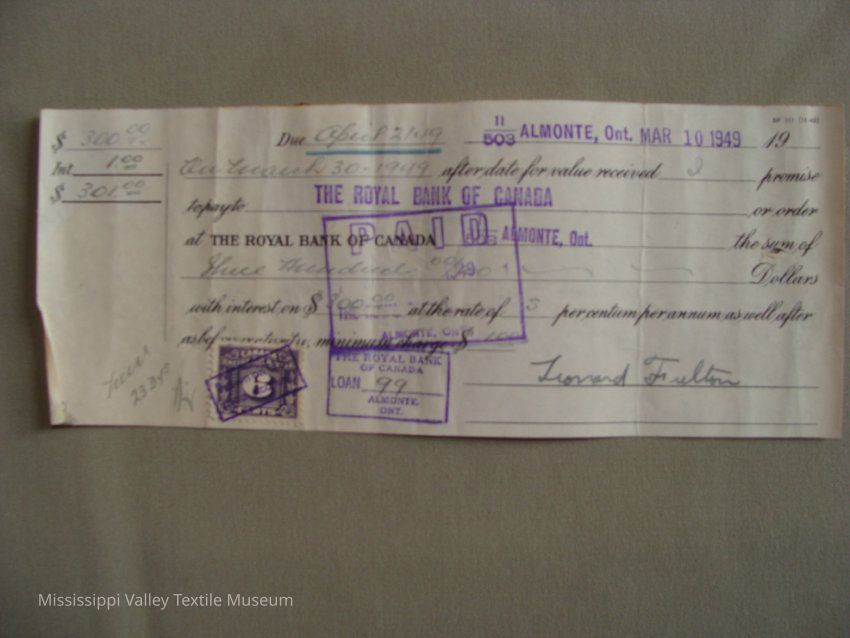 $ 300.00
Int 1.00
$ 301.00
Due April 2/49
11
503 ALMONTE, Ont. MAR 10 1949 19
On March 30-1949 after date for value received I promise
to pay to THE ROYAL BANK OF CANADA or order
at THE ROYAL BANK OF CANADA ALMONTE, Ont. the sum of
PAID
Three Hundred 00/100 Dollars
with interest on $ 300.00 at the rate of 5 per centum per annum as well after
as before maturity, minimum charge $ 1.00
ALMONTE, ONT.
THE ROYAL BANK
OF CANADA
LOAN 99
ALMONTE
ONT.
3
Leonard Fulton
Mississippi Valley Textile Museum